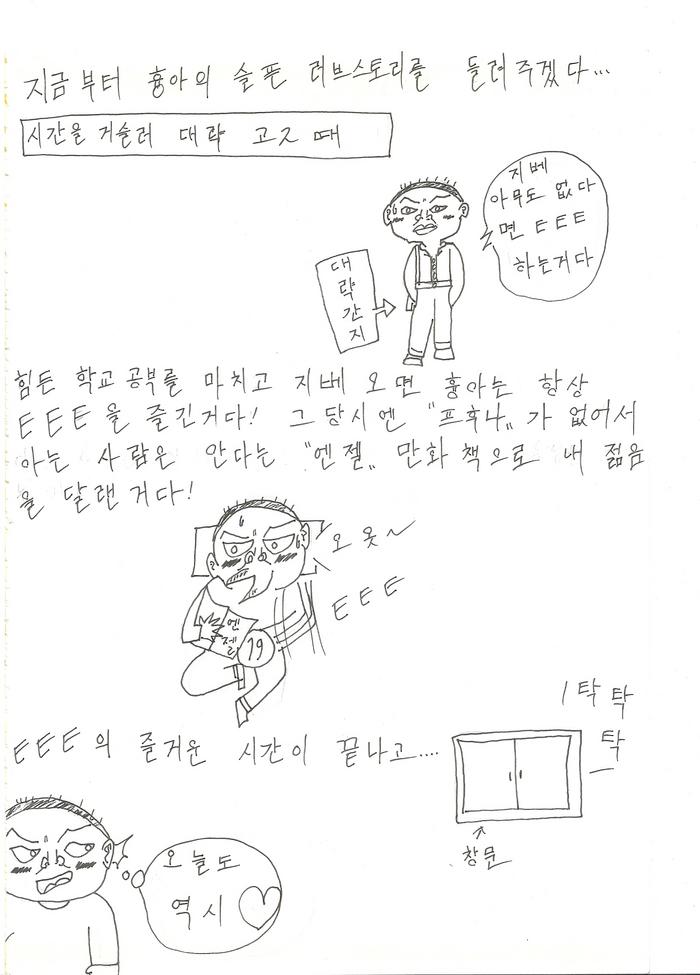 지금부터 흉아의 슬픈 러브스토리를 들려주겠다...
시간을 거슬러 대략 고2 때
지베
아무도 없다
면 ㅌㅌㅌ
하는거다
대
략
간
지
힘든 학교 공부를 마치고 지베 오면 흉아는 항상
ㅌㅌㅌ을 즐긴거다! 그 당시엔 "프후나" 가 없어서
아는 사람은 안다는 "엔젤" 만화책으로 내 젊음
을 달랜거다!
오 옷~
ㅌㅌㅌ
엔
젤
19
탁 탁
탁
ㅌㅌㅌ의 즐거운 시간이 끝나고....
창문
오늘도
역시 ♡